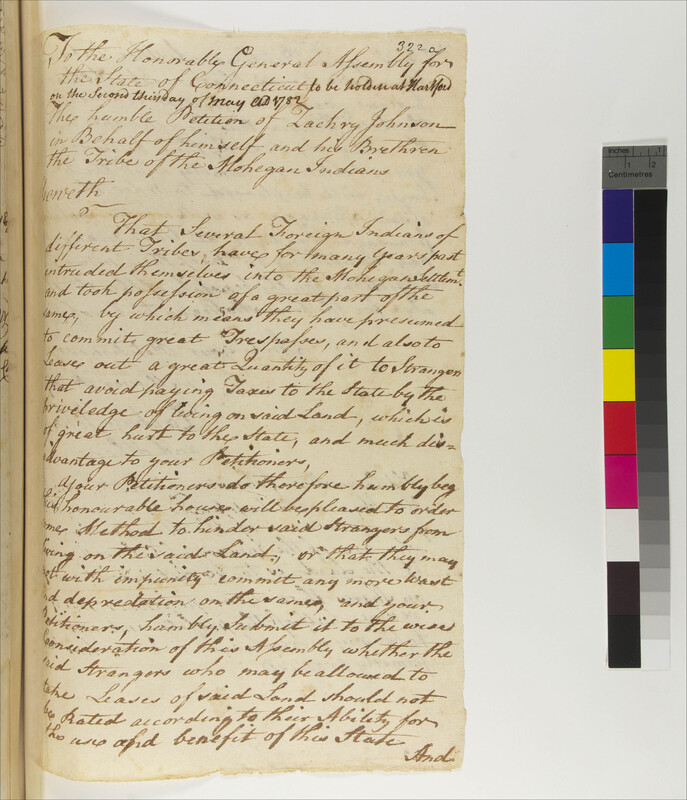 322a
To the Honorably General Assembly for
the State of Connecticut to be holden at Hartford
on the Second thirsday of May AD 1782
The humble Petition of Zachry Johnson
in Behalf of himself and his Brethren
the Tribe of the Mohegan Indians
Sheweth
That Several Foreign Indians of
different Tribes, have for many Years past
intruded themselves into the Mohegan Settlemt.
and took possession of a great part of the
same, by which means they have presumed
to commit great Trespasses, and also to
Lease out a great Quantity of it to Strangers
that avoid paying Taxes to the State by the
priviledge of living on said Land, which is
of great hurt to the State, and much dis=
advantage to your Petitioners,
Your Petitioners do therefore humbly beg
this honourable house will be pleased to order
some Method to hinder said Strangers from
living on the said Land, or that they may
not with impunity commit any more Wast
and depredation on the same, and your
Petitioners, humbly Submit it to the wise
Consideration of this Assembly whether the
said Strangers who may be allowed to
take Leases of said Land should not
be Rated according to their Ability for
the use and benefit of this State
And
Inches 1 2
Centimetres